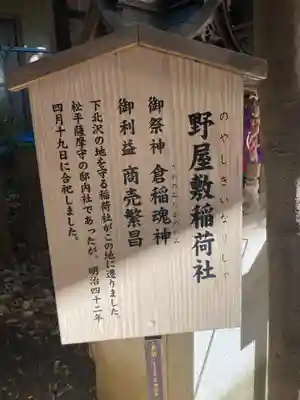 野屋敷稲荷社
のやしきいなりしゃ
御祭神 倉稲魂神
御利益 商売繁昌
下北沢の地を守る稲荷社がこの地に遷りました
松平薩摩守の邸内社であったが、明治四十二年
四月十九日に合祀しました。